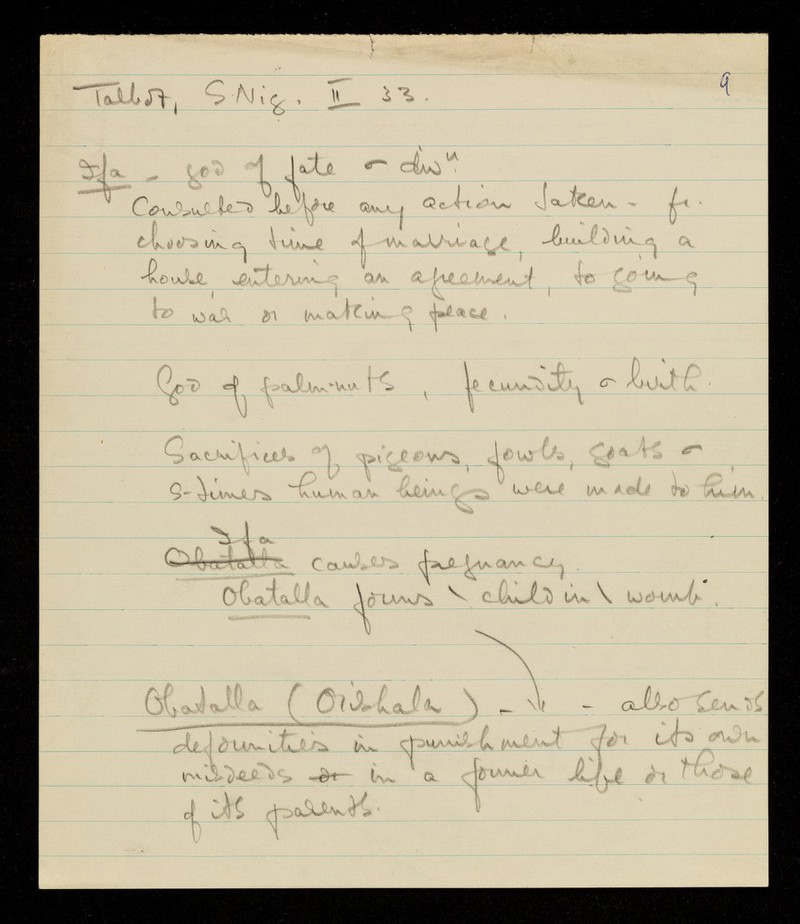 Talbot, S. Nig. II 33. 9
Ifa - god of fate & divn.
Consulted before any action taken - fr.
choosing time of marriage, building a
house, entering an agreement, to going
to war or making peace.
God of palm-nuts, fecundity & birth.
Sacrifices of pigeons, fowls, goats &
s-times human beings were made to him.
Ifa
Obatalla causes pregnancy.
Obatalla forms \ child in \ womb.
Obatalla (Orishala) - " - also sends
deformities in punishment for its own
misdeeds or in a former life or those
of its parents.